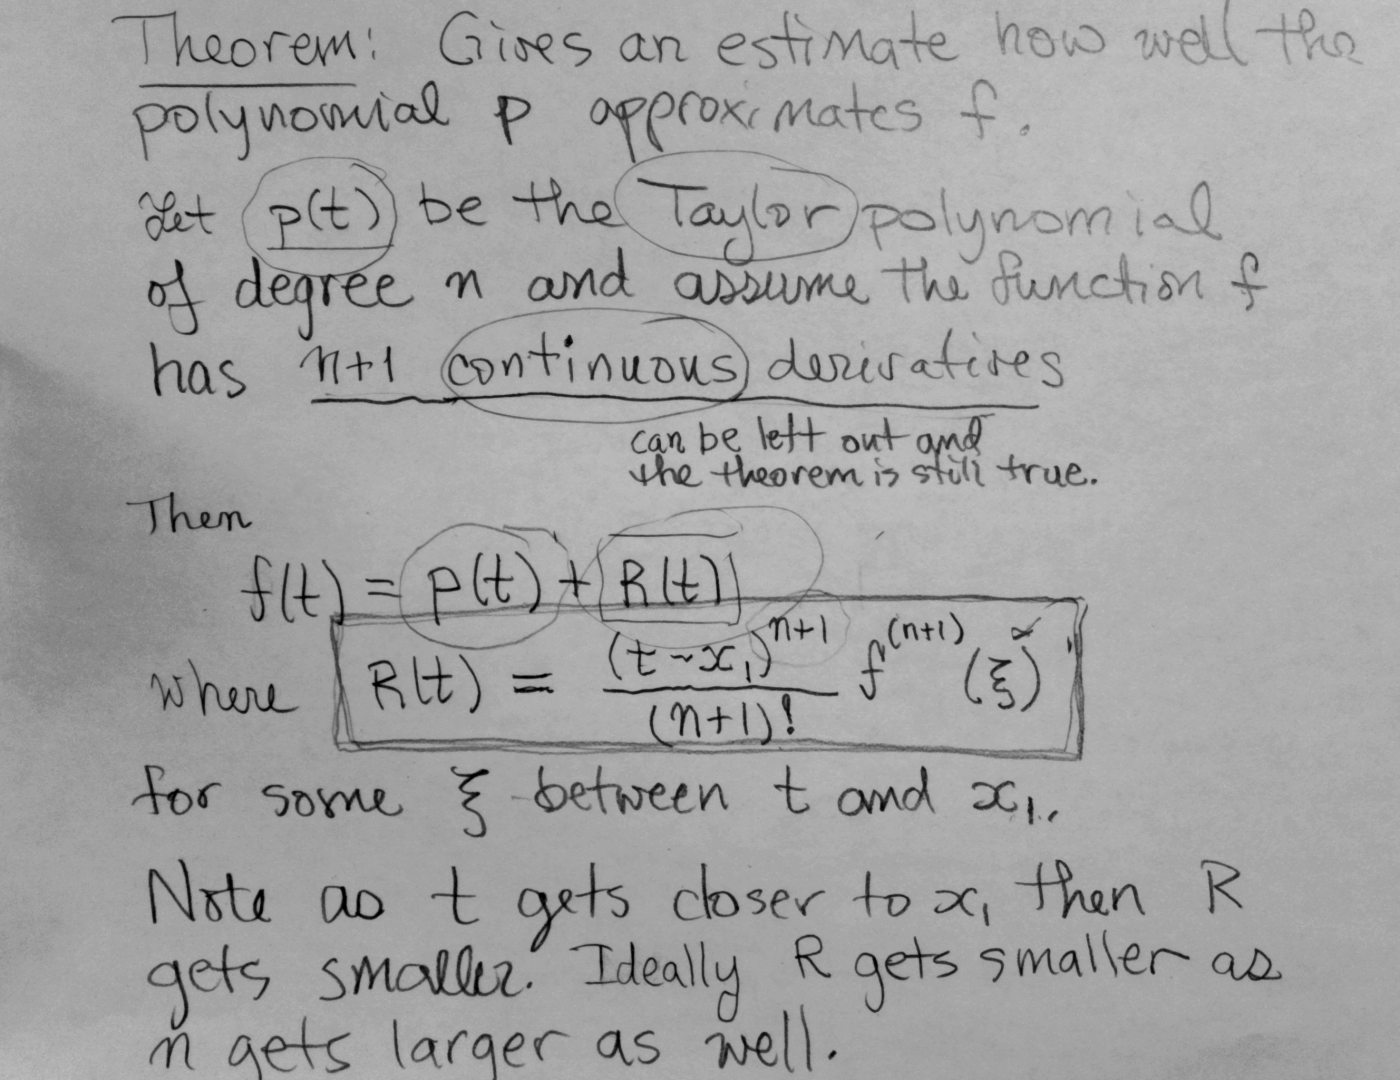 Theorem: Gives an estimate how well the
polynomial p approximates f.
Let p(t) be the Taylor polynomial
of degree n and assume the function f
has n+1 continuous derivatives
can be left out and
the theorem is still true.
Then
f(t) = p(t) + R(t)
where R(t) = (t-x₁)ⁿ⁺¹/(n+1)! f⁽ⁿ⁺¹⁾(ξ)
for some ξ between t and x₁.
Note as t gets closer to x₁ then R
gets smaller. Ideally R gets smaller as
n gets larger as well.